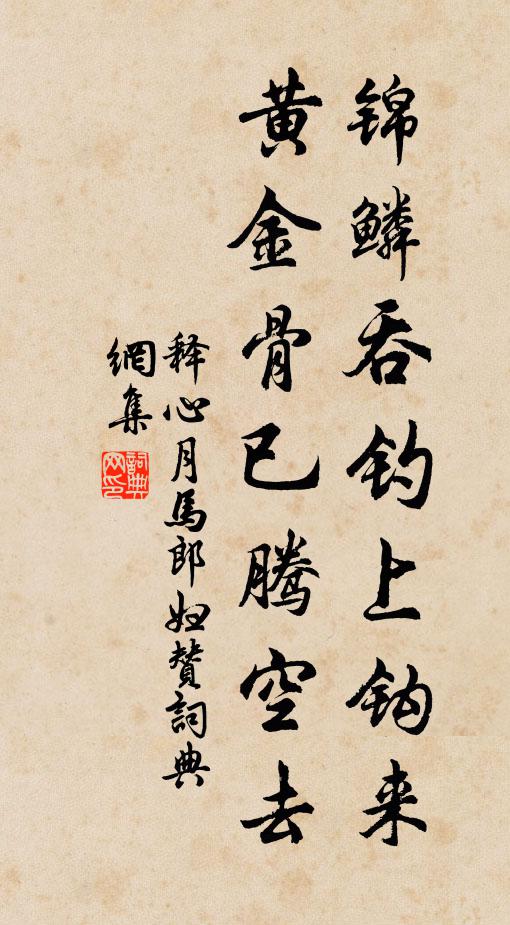 锦鳞吞钓上钩来
黄金骨已腾空去
释心月马郎妇赞詞典
網集
詞典
网印